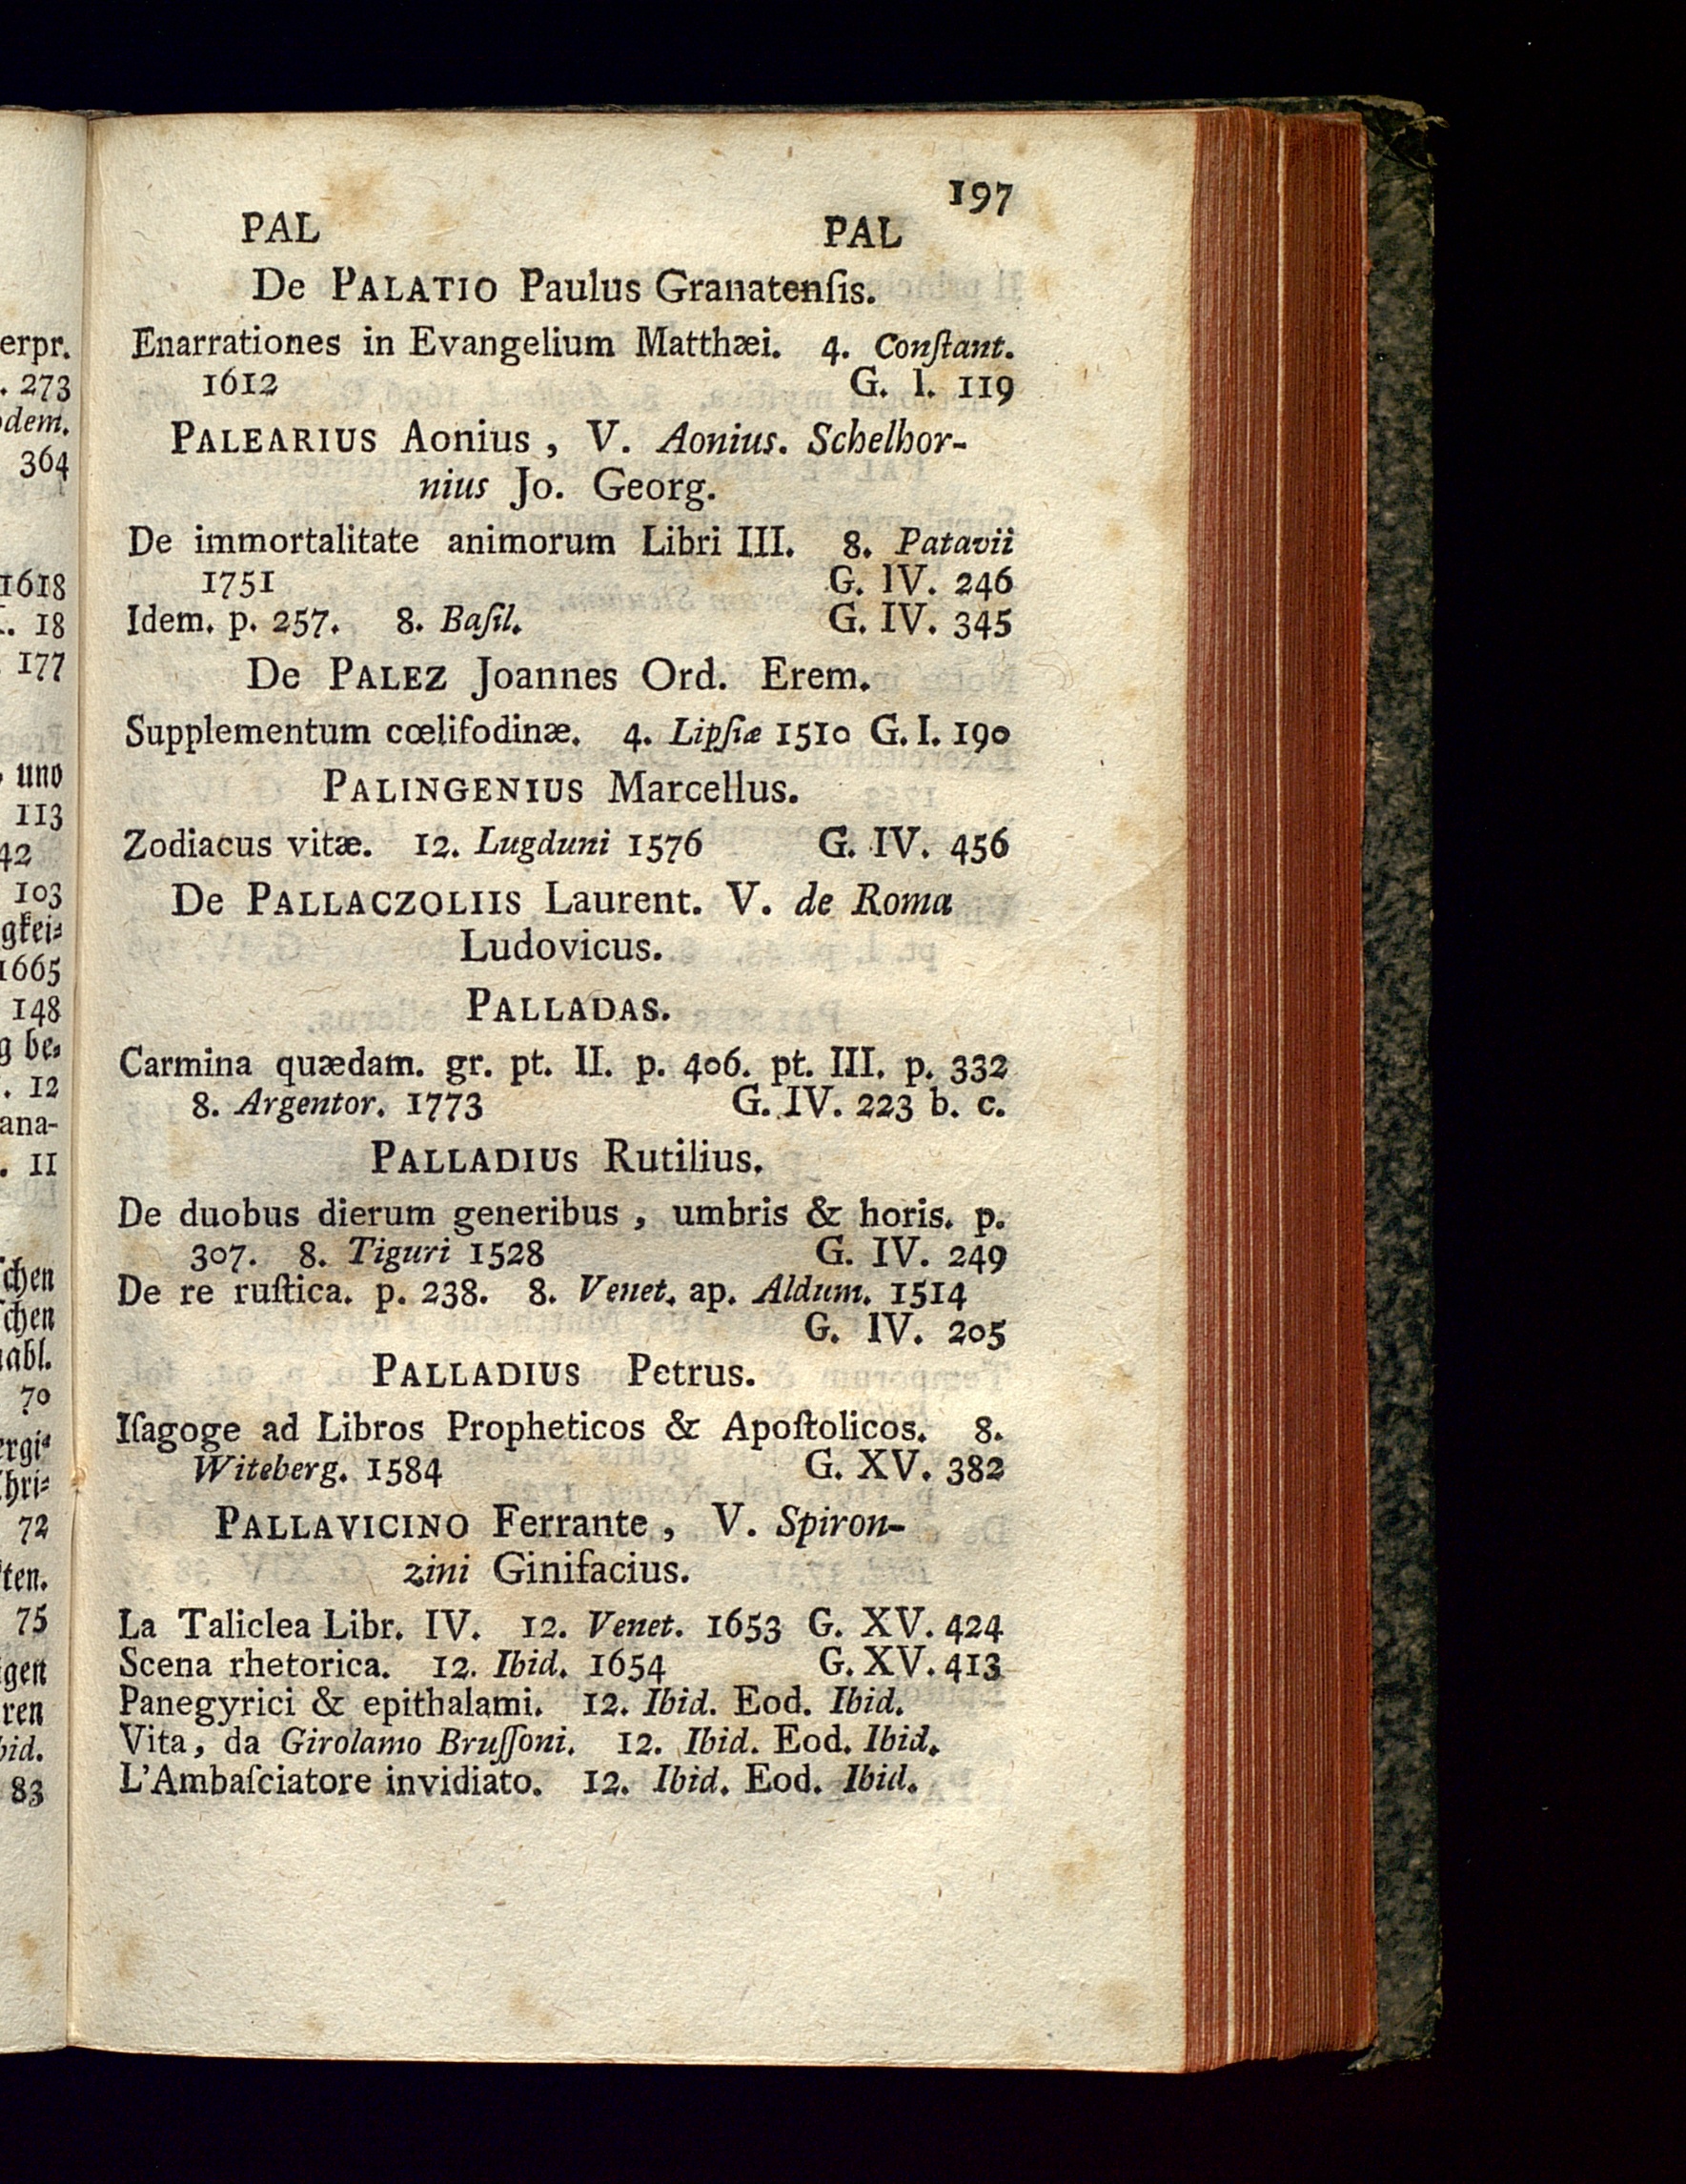 erpr.
. 273
odem.
364
1618
. 18
177
uno
113
42
103
gkei=
1665
148
g be=
. 12
ana-
. 11
ſchen
ſchen
abl.
70
ergi=
hri=
72
ten.
75
igen
ren
bid.
83
197
PAL PAL
De PALATIO Paulus Granatenſis.
Enarrationes in Evangelium Matthæi. 4. Conſtant.
1612 G. I. 119
PALEARIUS Aonius, V. Aonius. Schelhor-
nius Jo. Georg.
De immortalitate animorum Libri III. 8. Patavii
1751 G. IV. 246
Idem. p. 257. 8. Baſil. G. IV. 345
De PALEZ Joannes Ord. Erem.
Supplementum cœlifodinæ. 4. Lipſiæ 1510 G. I. 190
PALINGENIUS Marcellus.
Zodiacus vitæ. 12. Lugduni 1576 G. IV. 456
De PALLACZOLIIS Laurent. V. de Roma
Ludovicus.
PALLADAS.
Carmina quædam. gr. pt. II. p. 406. pt. III. p. 332
8. Argentor. 1773 G. IV. 223 b. c.
PALLADIUS Rutilius.
De duobus dierum generibus, umbris & horis. p.
307. 8. Tiguri 1528 G. IV. 249
De re ruſtica. p. 238. 8. Venet. ap. Aldum. 1514
G. IV. 205
PALLADIUS Petrus.
Iſagoge ad Libros Propheticos & Apoſtolicos. 8.
Witeberg. 1584 G. XV. 382
PALLAVICINO Ferrante, V. Spiron-
zini Ginifacius.
La Taliclea Libr. IV. 12. Venet. 1653 G. XV. 424
Scena rhetorica. 12. Ibid. 1654 G. XV. 413
Panegyrici & epithalami. 12. Ibid. Eod. Ibid.
Vita, da Girolamo Bruſſoni. 12. Ibid. Eod. Ibid.
L'Ambaſciatore invidiato. 12. Ibid. Eod. Ibid.